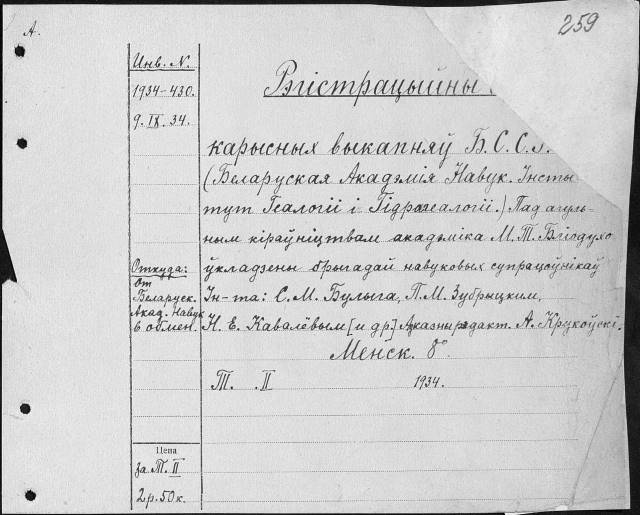 А.
259
Инв. N.
1934-430.
9.IX.34.
Рэгістрацыйны
карысных выкапняў Б.С.С.
(Беларуская Акадэмія Навук. Інсты
тут Геалогіі і Гідрагеалогіі.) Пад агуль-
ным кіраўніцтвам акадэміка М. Т. Бліодухо
Откуда:
укладзены брыгадай навуковых супрацоўнікаў
от
Беларуск.
Акад. Навук
в обмен.
Ін-та: С.М. Булыга, П.М. Зубрыцким,
Н. Е. Кавалёвым [и др.] Адказны рэдакт. А. Крукоўскі.
Менск. 8°
Т. II 1934.
Цена
за Т. II
2 р. 50 к.